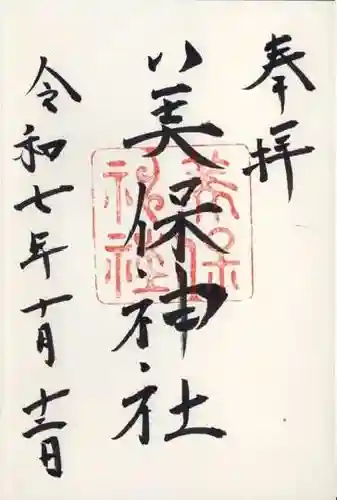 奉拝
八美保神社
令和七年十月十二日
美保
神社